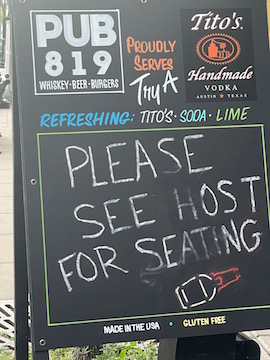 PUB
819
WHISKEY·BEER·BURGERS
PROUDLY
SERVES
Try A
Tito's®
Handmade
VODKA
AUSTIN ★ TEXAS
REFRESHING: TITO'S · SODA · LIME
PLEASE
SEE HOST
FOR SEATING
MADE IN THE USA • GLUTEN FREE